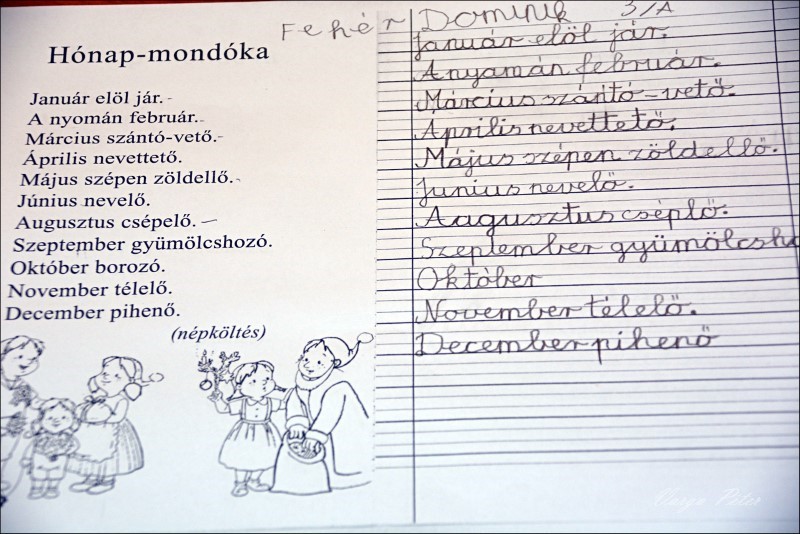 Hónap-mondóka
Január elöl jár.
A nyomán február.
Március szántó-vető.
Április nevettető.
Május szépen zöldellő.
Június nevelő.
Augusztus csépelő.
Szeptember gyümölcshozó.
Október borozó.
November télelő.
December pihenő.
(népköltés)
Fehér Dominik 3/A
Január elöl jár.
A nyamán február.
Március szántó-vető.
Április nevettető.
Május szépen zöldellő.
Junius nevelő.
Aagusztus cséplő.
Szeptember gyümölcsho
Október
November télelő.
December pihenő
Varga Péter